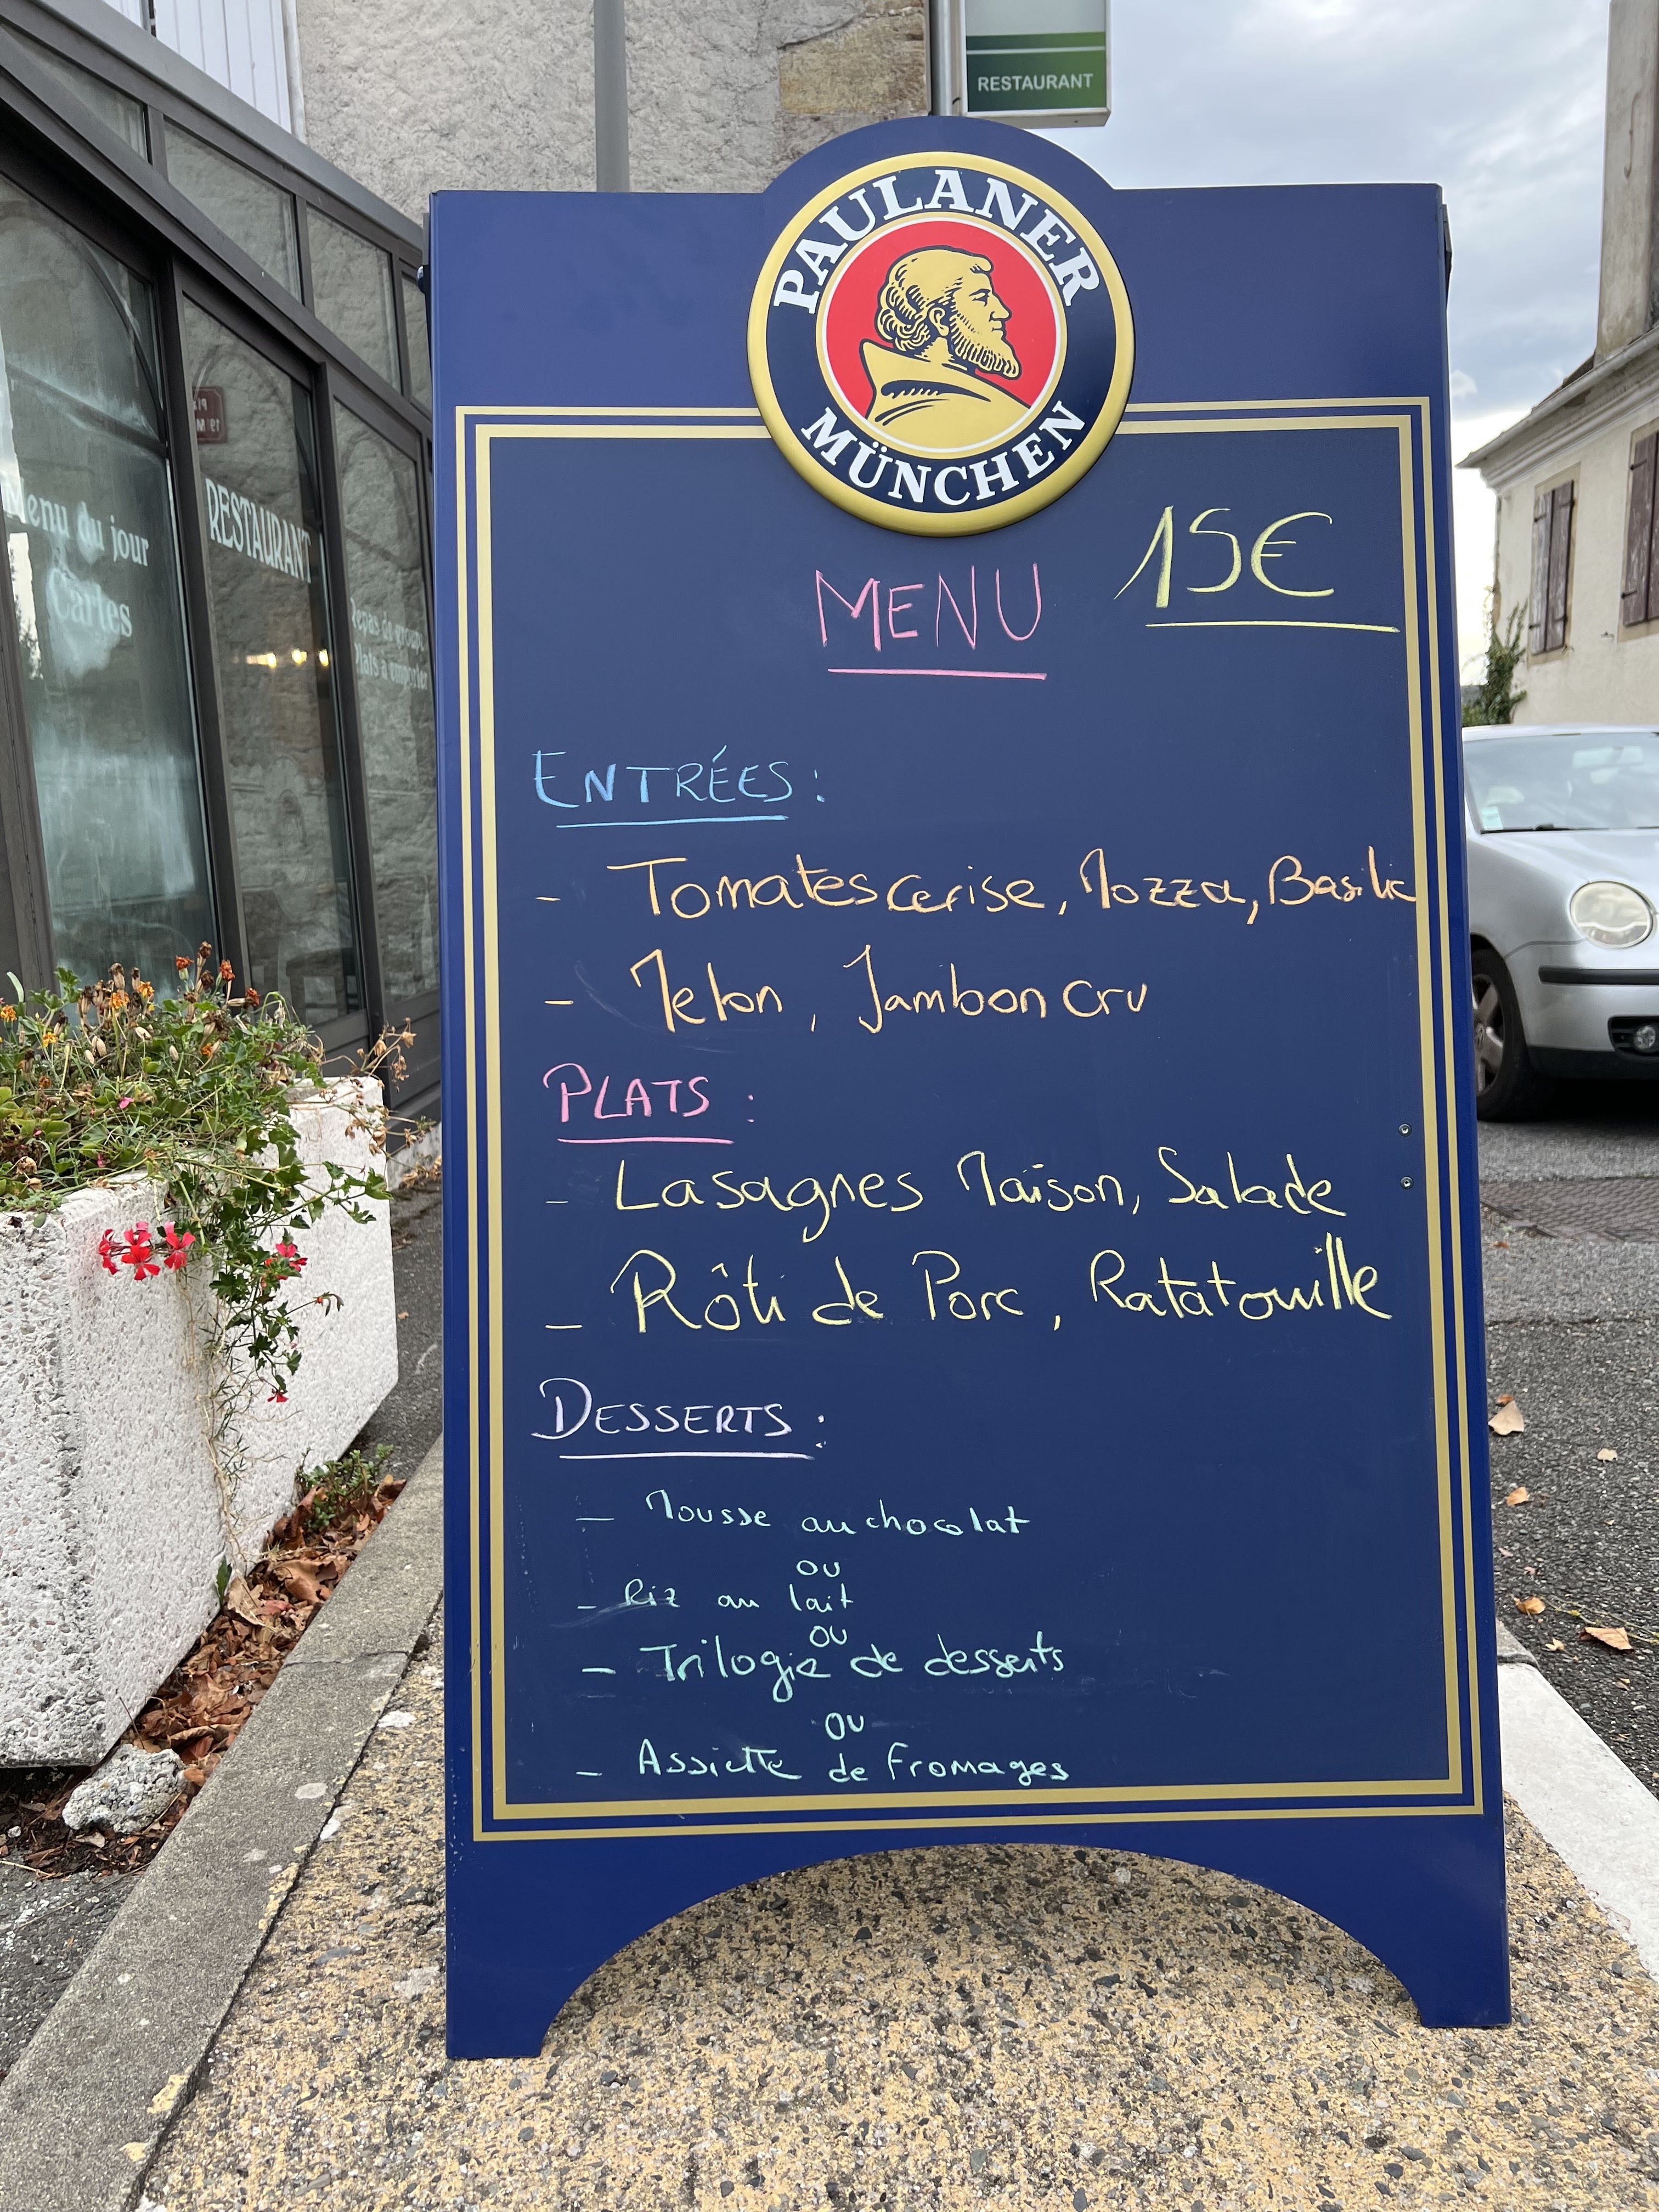 RESTAURANT
PAULANER
MÜNCHEN
Menu du jour
Cartes
RESTAURANT
Repas de groupe
Plats à emporter
15€
MENU
ENTRÉES :
- Tomates cerise, Mozza, Basilic
- Melon, Jambon cru
PLATS :
- Lasagnes Maison, Salade
- Rôti de Porc, Ratatouille
DESSERTS :
- Mousse au chocolat
ou
- Riz au lait
ou
- Trilogie de desserts
ou
- Assiette de fromages